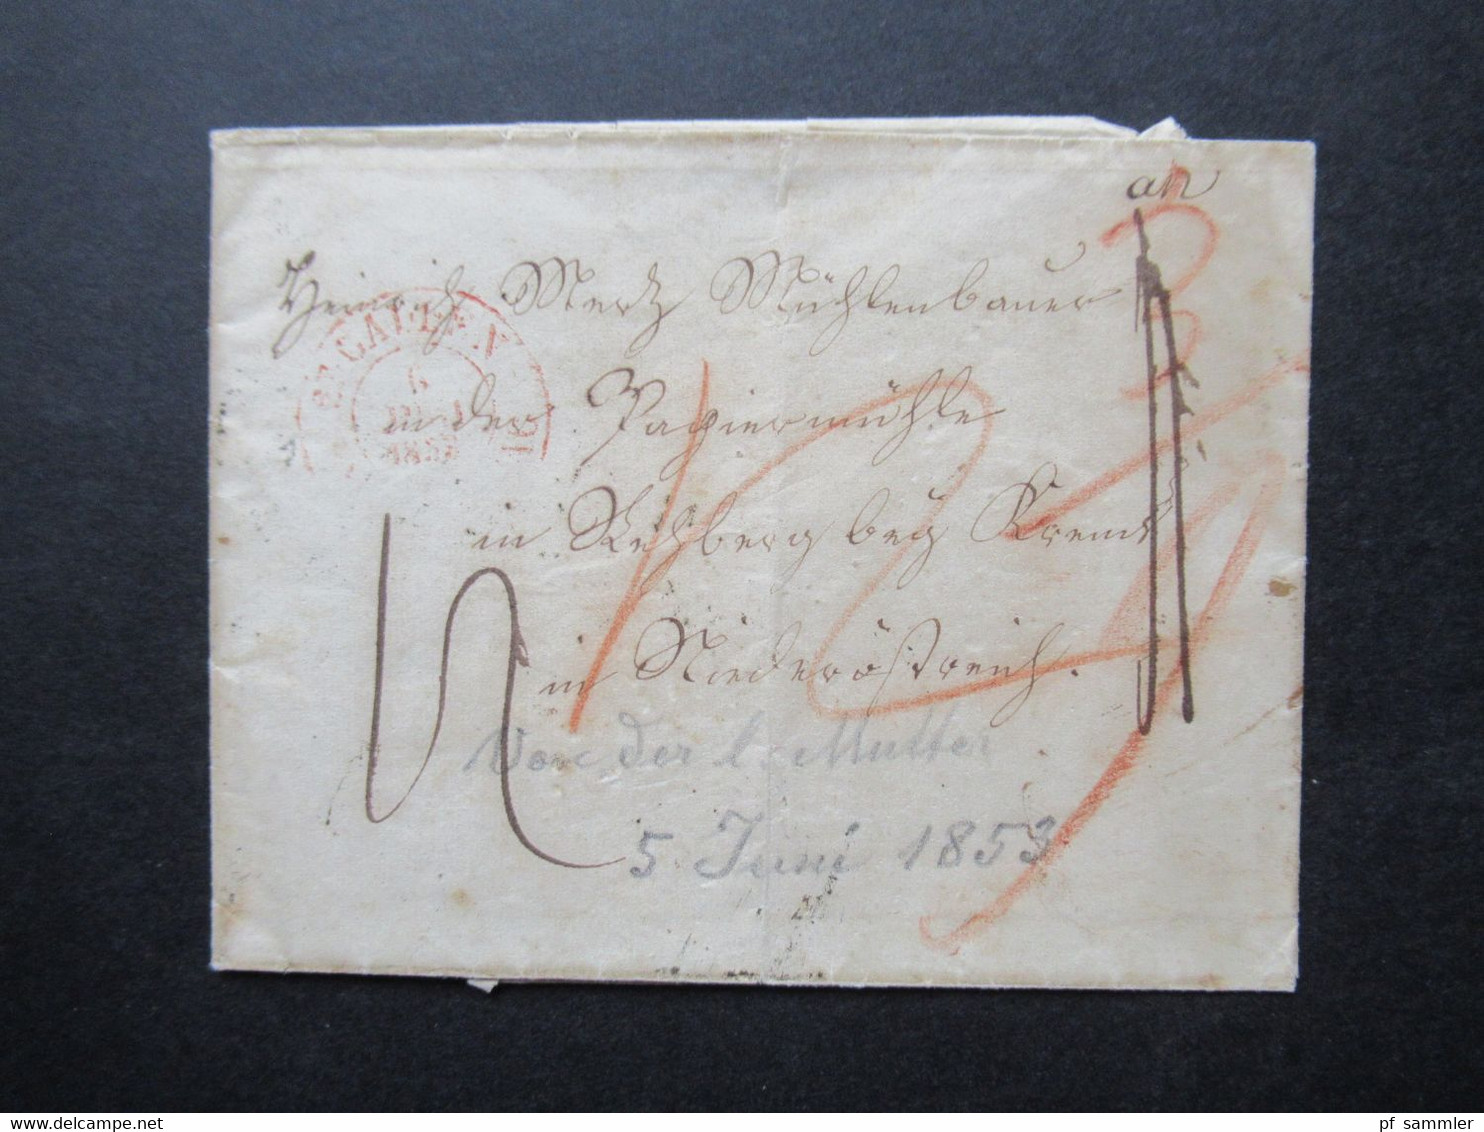 an
Heinrich Merz Mühlenbauer
ST GALLEN
6
1853
in der Papiermühle
in Rehberg bey Krems
in Niederöstreich.
Von der l. Mutter
5 Juni 1853
delcampe.net
pf sammler